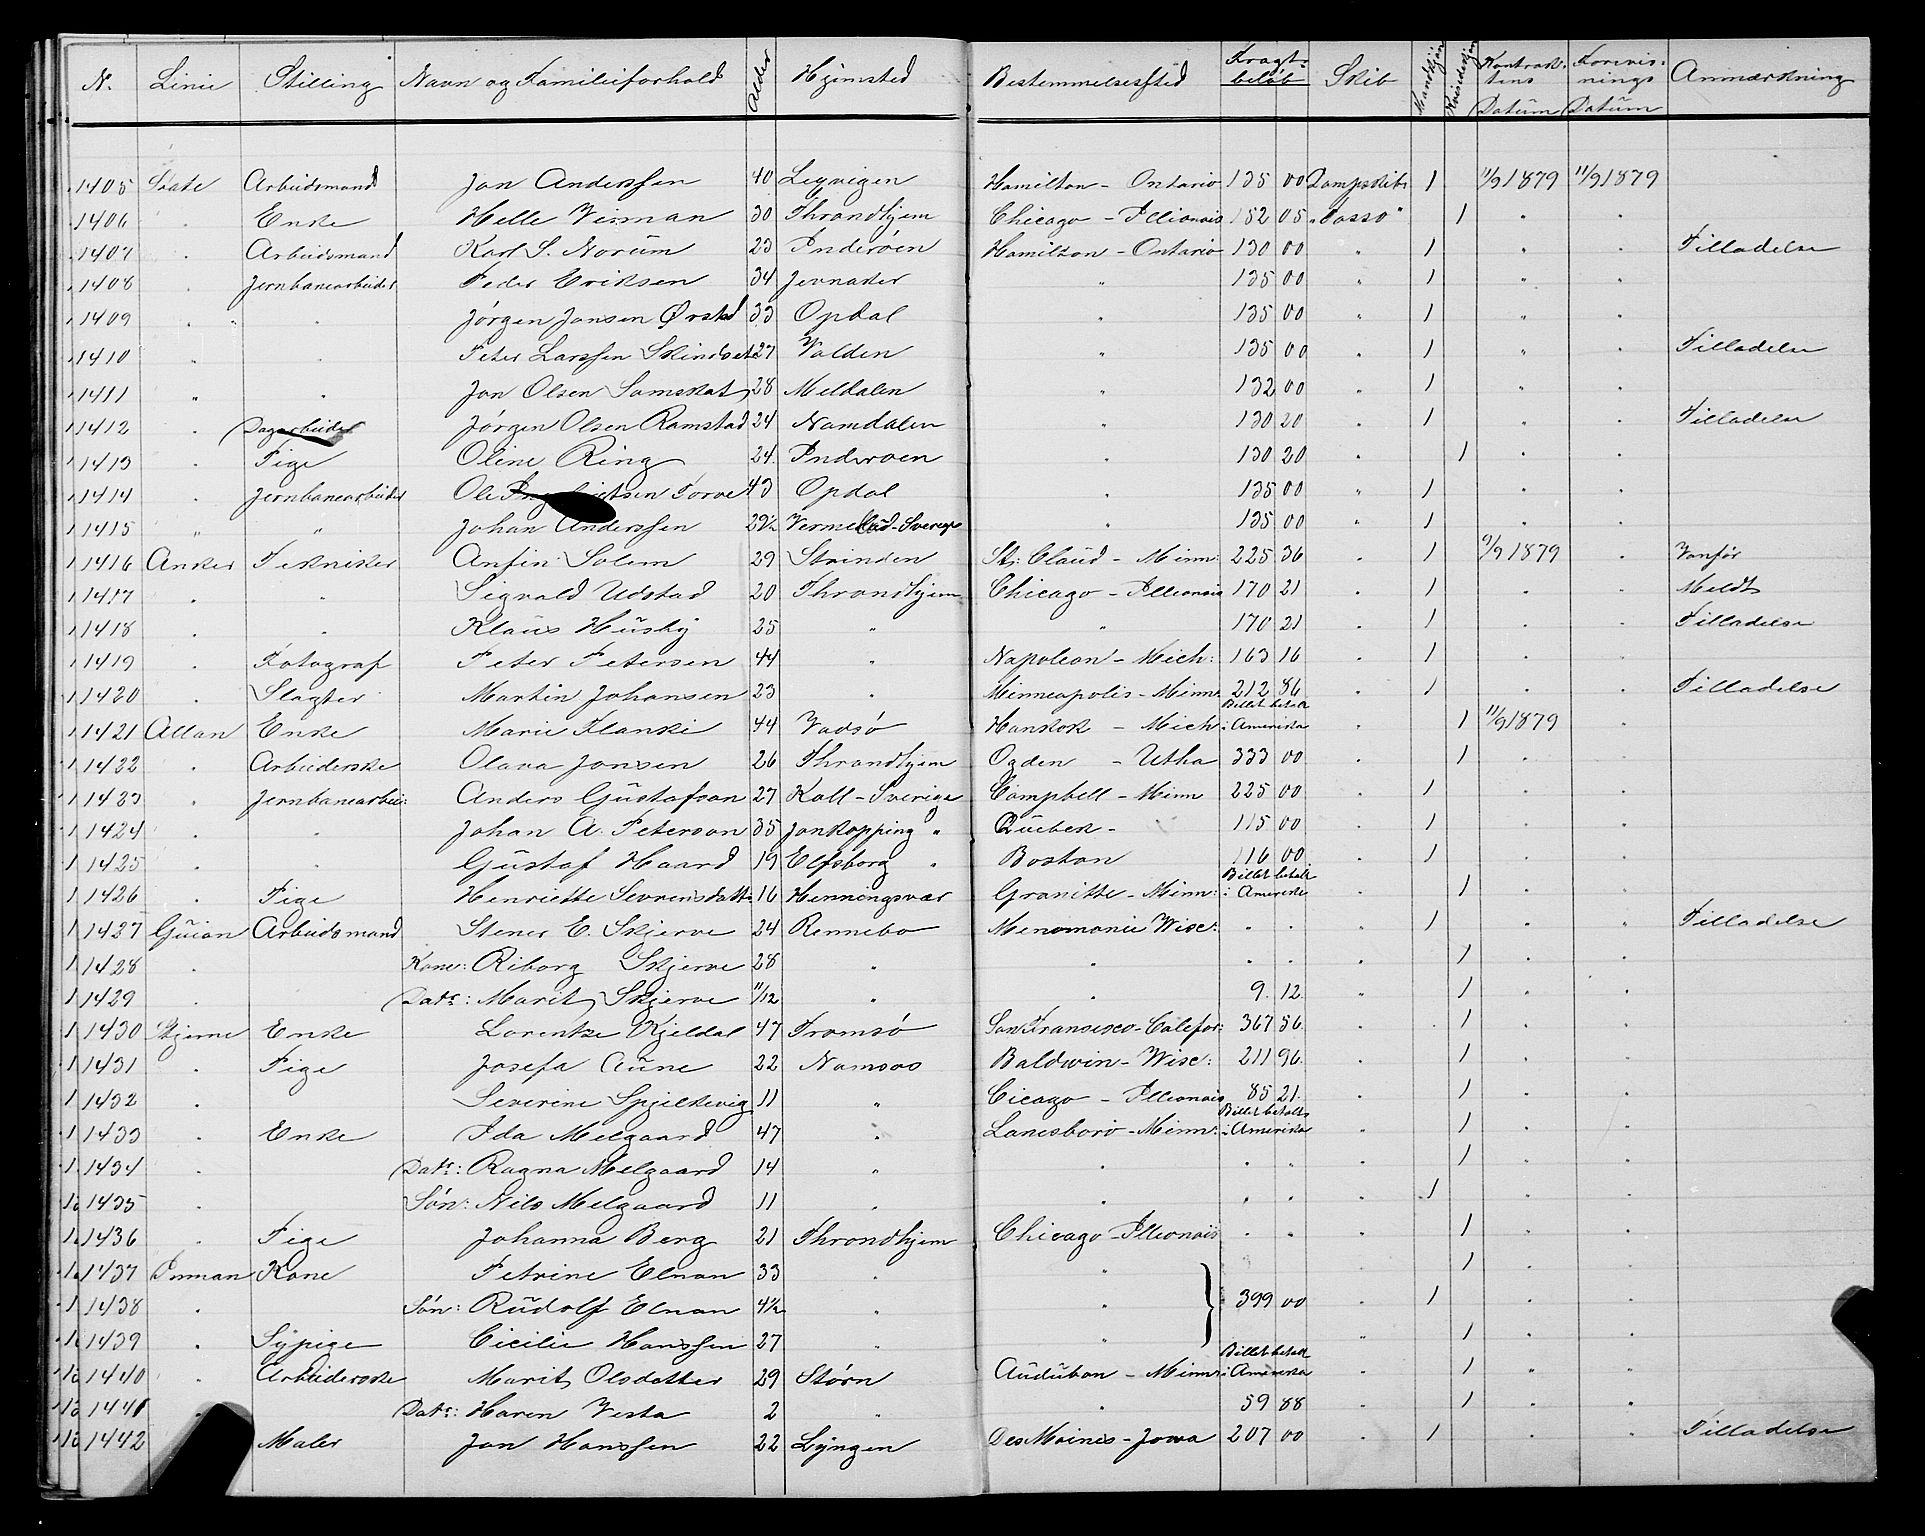 N. Linie Stilling Navn og Familieforhold Alder Hjemsted Bestemmelsessted Fragt-beløb Skib Mandkjøn Kvindekjøn Kontrak-tens Datum Forevis-nings Datum Anmærkning
1405 State Arbeidsmand Jon Anderssen 40 Hamilton - Ontario 135 00 Dampskib 1 11/9 1879 11/9 1879
1406 " Enke Helle Virman 30 Throndhjem Chicago - Illionais 152 05 "Tasso" 1 " "
1407 " Arbeidsmand Karl S. Norum 23 Inderøen Hamilton - Ontario 130 00 " 1 " " Tilladelse
1408 " Jernbanearbeider Peder Eriksen 34 Jevnaker " 135 00 " 1 " "
1409 " " Jørgen Jonsen Ørstad 33 Opdal " 135 00 " 1 " "
1410 " " Peter Larssen Skindset 27 Valden " 135 00 " 1 " " Tilladelse
1411 " " Jon Olsen Somskat 28 Meldalen " 132 00 " 1 " "
1412 " Dagarbeider Jørgen Olsen Ramstad 24 Namdalen " 130 20 " 1 " " Tilladelse
1413 " Pige Oline Ring 24 Inderøen " 130 20 " 1 " "
1414 " Jernbanearbeider Ole Torve 43 Opdal " 135 00 " 1 " "
1415 " " Johan Anderssen 29½ Vermeland-Sverige " 135 00 " 1 " "
1416 Anker Tekniker Anfin Solem 29 Strinden St: Claud - Minn: 225 36 " 1 9/9 1879 " Vanfør
1417 " " Sigvald Udstad 20 Throndhjem Chicago - Illionais 170 21 " 1 " " Meldt
1418 " " Klaus Husby 25 " " 170 21 " 1 " " Tilladelse
1419 " Fotograf Peter Petersen 44 " Napoleon - Mich: 163 16 " 1 " "
1420 " Slagter Martin Johansen 23 " Minneapolis - Minn: 212 86 " 1 " " Tilladelse
1421 Allan Enke Marie Planki 44 Vadsø Hankok - Mich: Billet betalt i Amerika " 1 11/9 1879 "
1422 " Arbeiderske Olava Jonsen 26 Throndhjem Ogden - Utha 333 00 " 1 " "
1423 " Jernbanearbei: Anders Gustafson 27 Kall - Sverige Campbell - Minn 225 00 " 1 " "
1424 " " Johan A. Peterson 35 Jonkopping " Quebek - 115 00 " 1 " "
1425 " " Gustaf Haard 19 Elfsborg " Boston 116 00 " 1 " "
1426 " Pige Henriette Sevrensdatt: 16 Henningsvær Granitte - Minn: Billet betalt i Amerika " 1 " "
1427 Guion Arbeidsmand Stener E. Skjerve 24 Rennebo Menomonie Wisc: " " " 1 " " Tilladelse
1428 " Kone: Riborg Skjerve 28 " " " " " 1 " "
1429 " Datr: Marit Skjerve 11/12 " " 9 12 " 1 " "
1430 Stjerne Enke Lorentze Kjeldal 47 Tromsø San Fransisco - Calefor: 367 56 " 1 " "
1431 " Pige Josefa Aune 22 Namsos Baldwin - Wisc: 211 96 " 1 " "
1432 " Severine Spjelkevig 11 " Cicago - Illionais 85 21 " 1 " "
1433 " Enke Ida Melgaard 47 " Lanesboro - Minn: Billet betalt i Amerika " 1 " "
1434 " Datr: Ragna Melgaard 14 " " " " " 1 " "
1435 " Søn: Nils Melgaard 11 " " " " " 1 " "
1436 " Pige Johanna Berg 21 Throndhjem Chicago - Illionais " " " 1 " "
1437 Inman Kone Petrine Elnan 33 " " " 1 " "
1438 " Søn: Rudolf Elnan 4½ " " 399 00 " 1 " "
1439 " Sypige Cicilie Hanssen 27 " " " 1 " "
1440 " Arbeiderske Marit Olsdatter 29 Størn Audubon - Minn: Billet betalt i Amerika " 1 " "
1441 " Datr: Haren Vesta 2 " " 59 88 " 1 " "
1442 Maler Jon Hanssen 22 Lyngen Des Moines - Jowa 207 00 " 1 " " Tilladelse